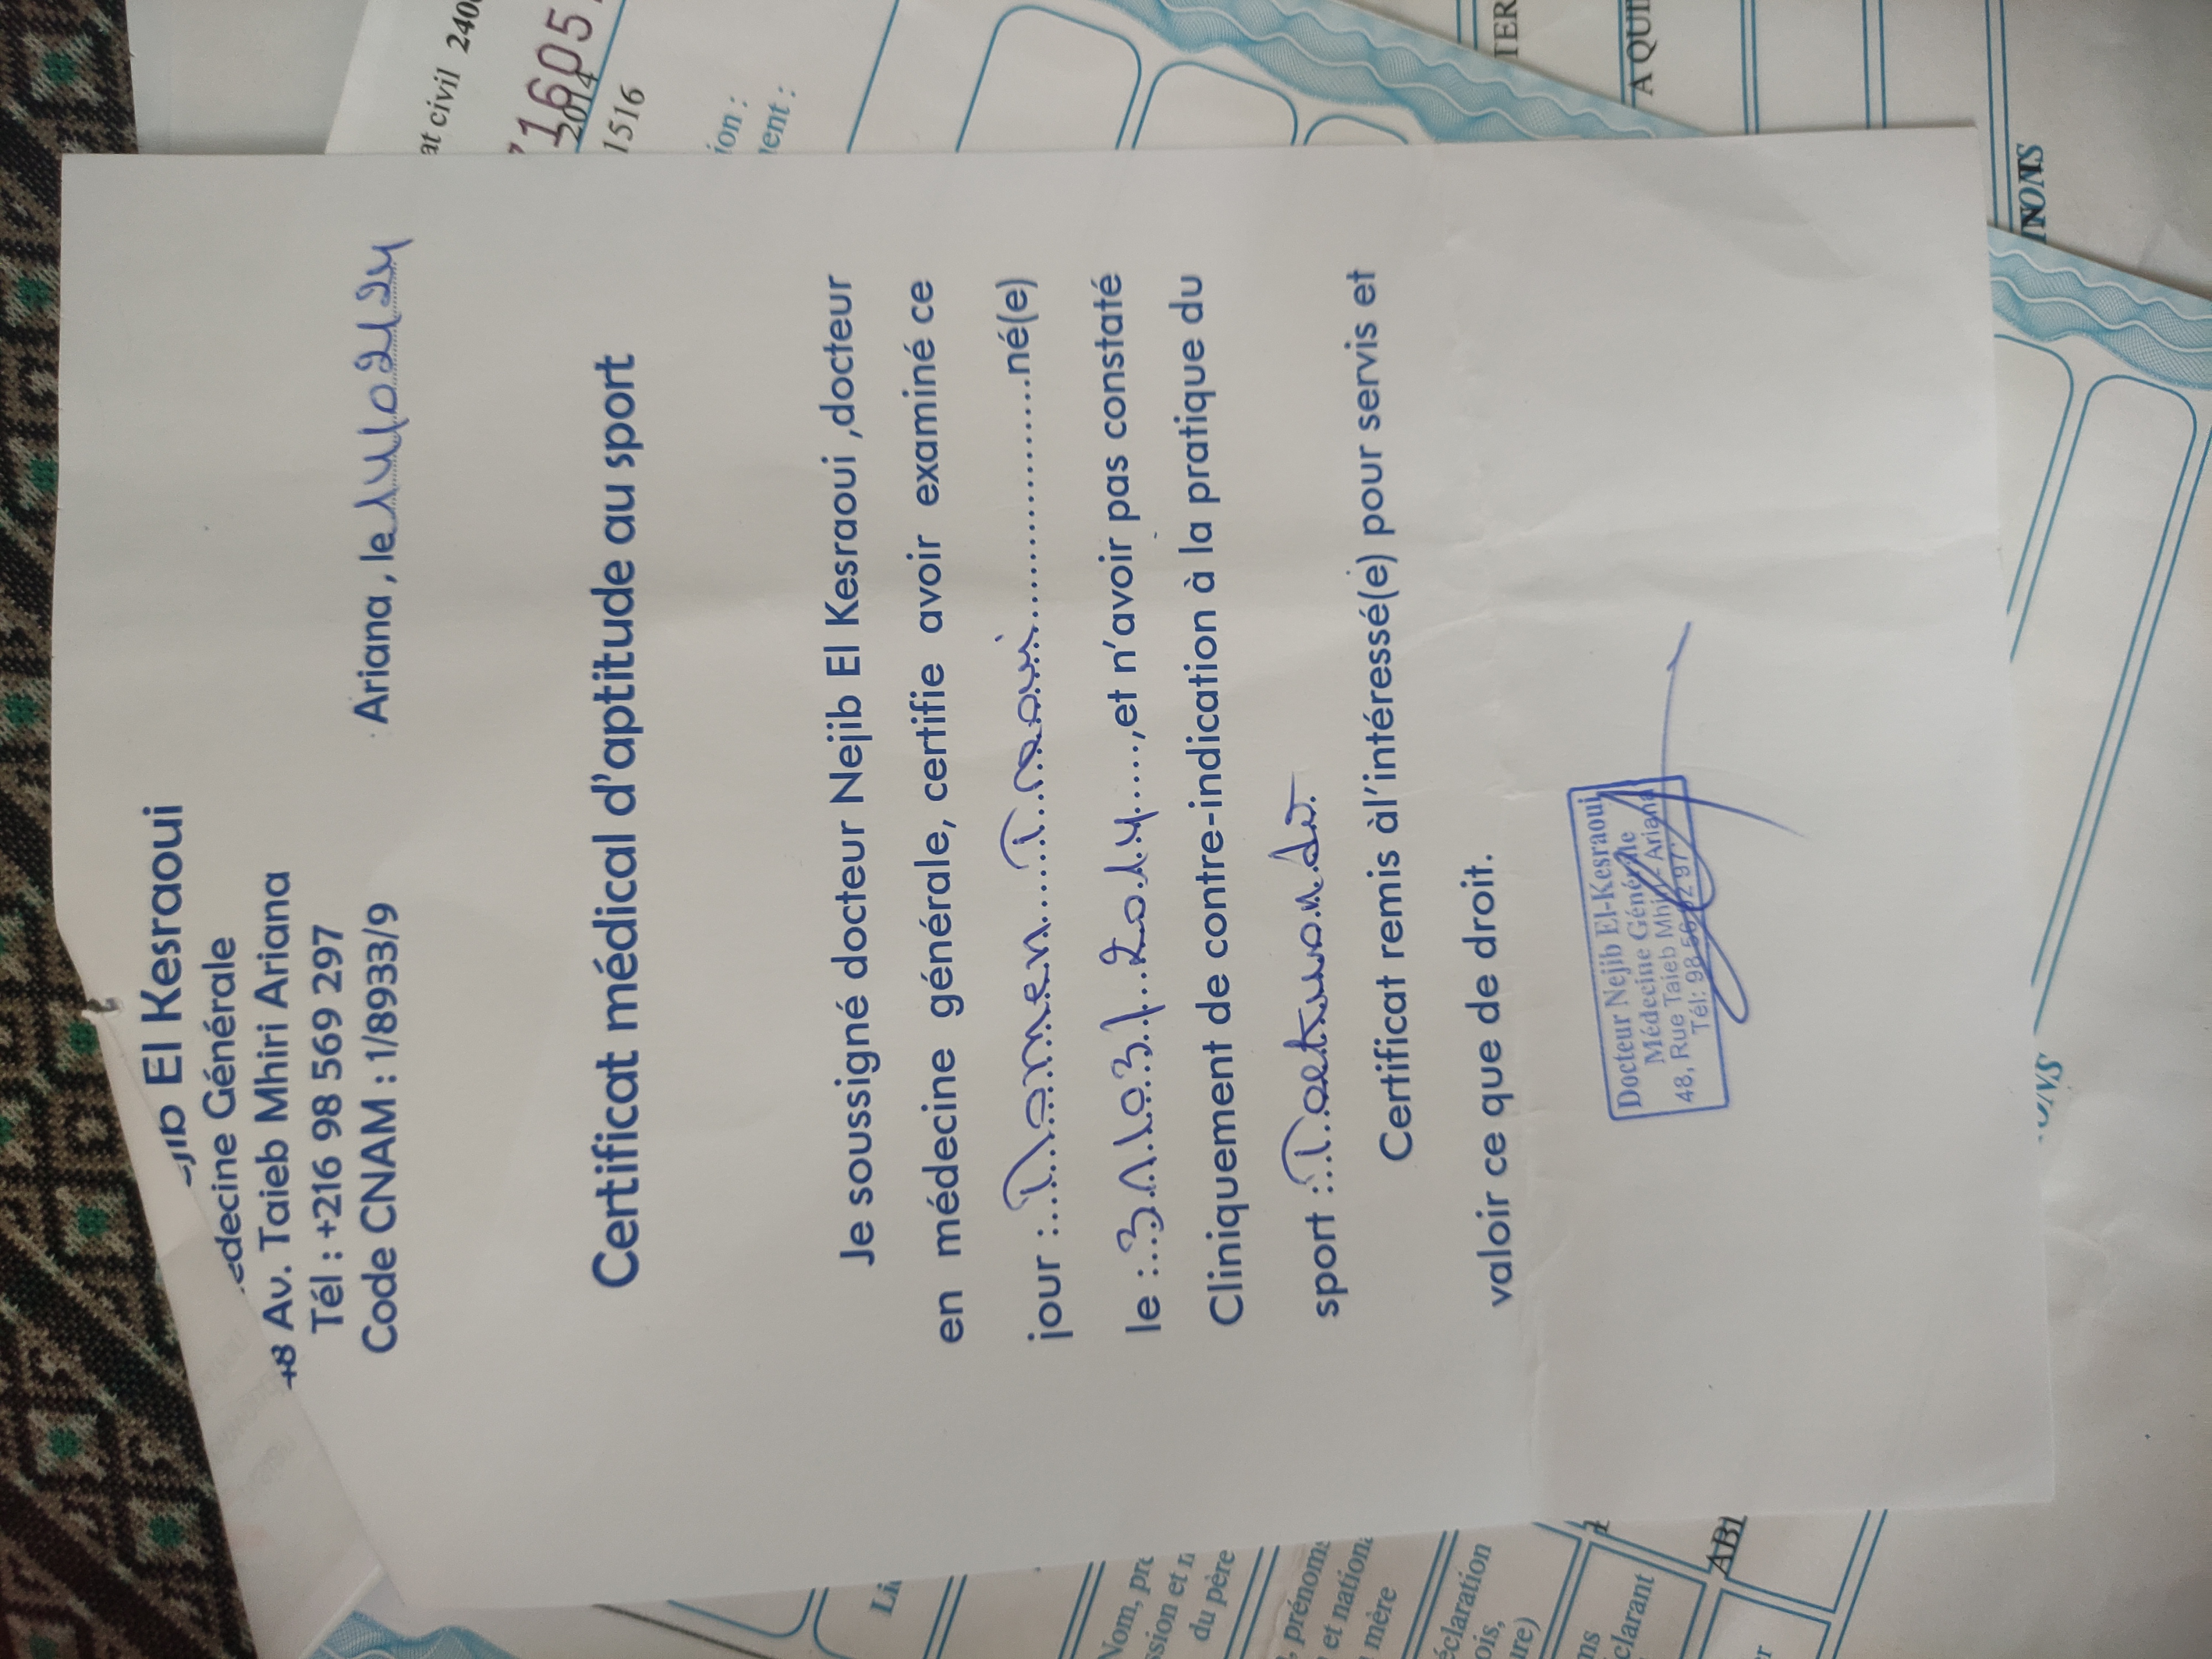 El Kesraoui
Médecine Générale
48 Av. Taieb Mhiri Ariana
Tél : +216 98 569 297
Code CNAM : 1/8933/9
Ariana , le
Certificat médical d'aptitude au sport
Je soussigné docteur Nejib El Kesraoui ,docteur
en médecine générale, certifie avoir examiné ce
jour : né(e)
le : 31/03/2014 ,et n'avoir pas constaté
Cliniquement de contre-indication à la pratique du
sport : Taekwondo
Certificat remis àl'intéressé(e) pour servis et
valoir ce que de droit.
Docteur Nejib El-Kesraoui
Médecine Générale
48, Rue Taieb Mhiri Ariana
Tél: 98 569 297
at civil 240
16051
2014
1516
ion :
ent :
A QUI
Nom, pr
ssion et n
du père
prénoms
et nationa
mère
éclaration
ois,
ure)
clarant